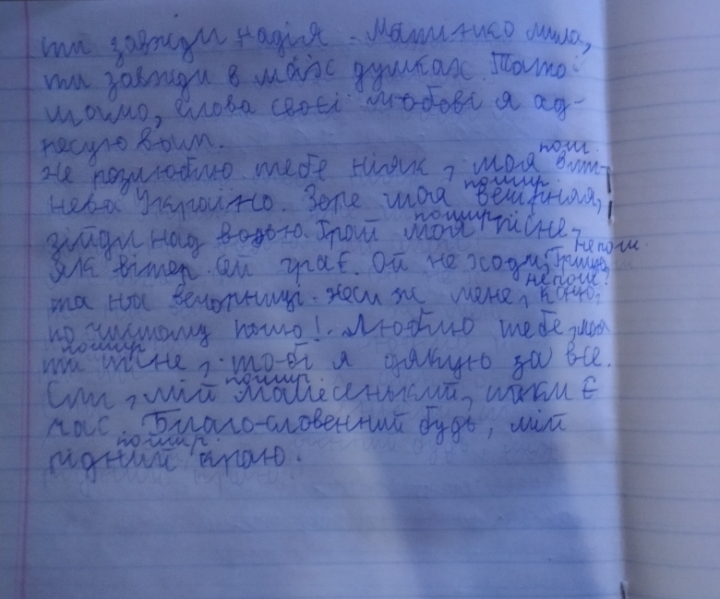 ти завжди надія. Матінко мила,
ти завжди в моїх думках. Тато і
мамо, слова своєї любові я ад-
ресую вам.
пош.
Не розлюблю тебе ніяк, моя виш-
пошир.
нева Україно. Зоре моя вечірняя,
пошир.
зійди над водою. Грай моя пісне,
непош.
як вітер грає. Ой не ходи, Грицю,
непош.
та на вечорниці. Неси ж мене, коню,
по чистому полю! Люблю тебе, моя
пошир
ти пісне, тобі я дякую за все.
пошир.
Спи, мій малесенький, поки є
час. Благословенний будь, мій
пошир.
рідний краю.